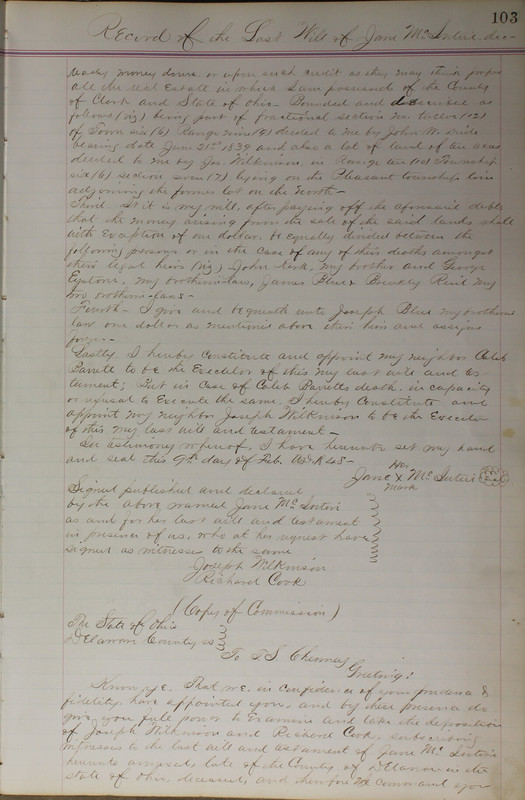 103
Record of the Last Will of Jane Mc Intire dec-
ready money down or upon such credit as they may think proper
all the real Estate in which I am possessed of the County
of Clark and State of Ohio. Bounded and describe as
follows (viz) being part of fractional section No. twelve (12)
of Town six (6) Range nine (9) deeded to me by John W.
bearing date June 21st 1839 and also a lot of land of ten acres
deeded to me by Jos. Wilkinson, in Range ten (10) Township
six (6) section seven (7) lying on the Pleasant township line
adjoining the former lot on the North-
Third. It is my will, after paying off the aforesaid debts
that the money arising from the sale of the said lands shall
with exception of one dollar, be equally divided between the
following persons or in the case of any of their deaths amongst
their legal heirs (viz) John Kirk, my brother and George
my brother in law, James Blue & Reid my
two brothers-laws-
Fourth- I give and bequeath unto Joseph Blue my brother in
law one dollar as mentioned above then him and assigns
forever-
Lastly I hereby Constitute and appoint my neighbor Caleb
Barrett to be the Executor of this my last will and tes
tament; But in Case of Caleb Barretts death, in capacity
or refusal to Execute the same, I hereby Constitute and
appoint my neighbor Joseph Wilkinson to be the Executor
of this my last will and testament-
In testimony whereof, I have hereunto set my hand
and seal this 9th day of Feb. AD. 1845-
Her
Jane X Mc Intire Seal
Mark
Signed published and declared
by the above named Jane Mc Intire
as and for her last will and testament
in presence of us, who at her request have
signed as witnesses to the same
Joseph Wilkinson
Richard Cook
(Copy of Commission)
The State of Ohio
Delaware County ss
To T.S. Greeting:
Know ye. That we. in confidence of your prudence &
fidelity, have appointed you, and by these presence do
give you full power to Examine and take the deposition
of Joseph Wilkinson and Richard Cook, subscribing
witnesses to the last will and testament of Jane Mc Intire
hereunto annexed, late of the County of Delaware in the
state of Ohio, deceased, and therefore we command you